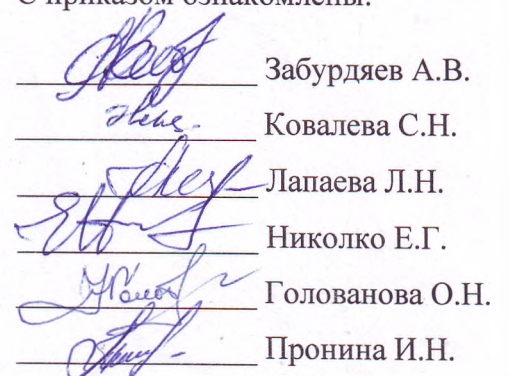 С приказом ознакомлены:
Забурдяев А.В.
Ковалева С.Н.
Лапаева Л.Н.
Николко Е.Г.
Голованова О.Н.
Пронина И.Н.